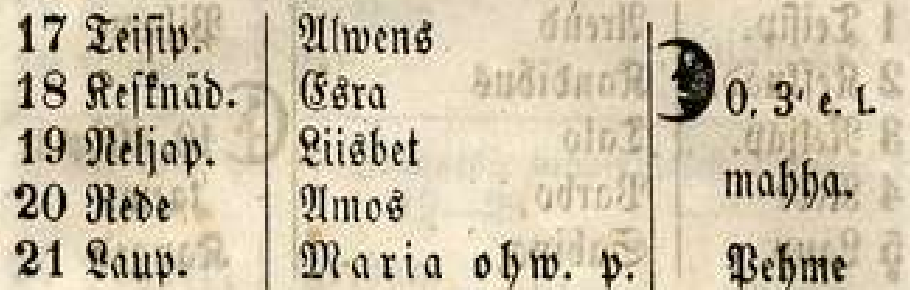 17 Teisip. Alwens
18 Kesknäd. Esra 0, 3' e. l.
19 Neljap. Liisbet
20 Rede Amos mahha.
21 Laup. Maria ohw. p. Pehme